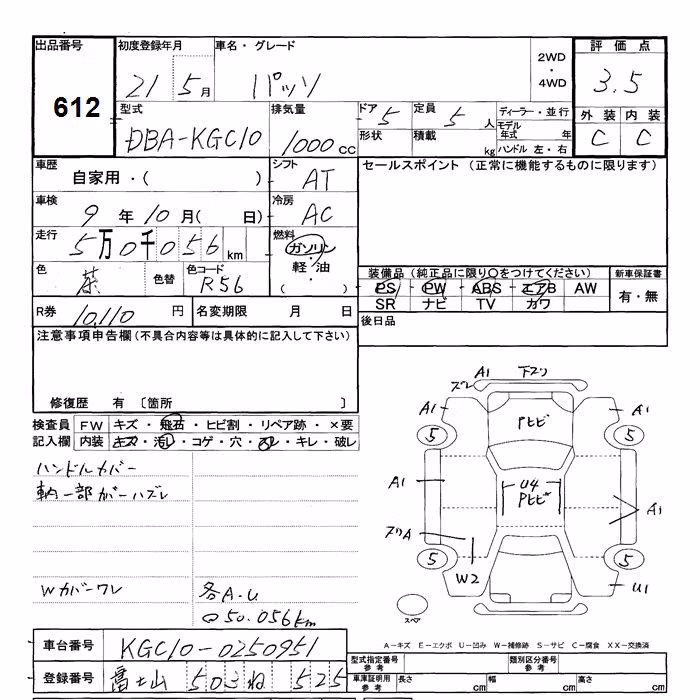 出品番号 初度登録年月 車名・グレード 2WD・4WD 評価点
612 21 5月 パッソ 3.5
型式 排気量 ドア 5 定員 5人 ディーラー・並行 外装 内装
DBA-KGC10 1000cc 形状 積載 kg モデル年式 年 C C
ハンドル 左・右
車歴 自家用・( ) シフト AT セールスポイント (正常に機能するものに限ります)
車検 9年10月( 日) 冷房 AC
走行 5万0千056km 燃料 ガソリン・軽・油 ( )
色 茶 色替 色コード R56 装備品 (純正品に限り○をつけてください) 新車保証書
PS PW ABS エアB AW 有・無
SR ナビ TV カワ
R券 10,110円 名変期限 月 日 後日品
注意事項申告欄 (不具合内容等は具体的に記入して下さい)
修復歴 有 〔箇所 〕
検査員 FW キズ・飛石・ヒビ割・リペア跡・×要
記入欄 内装 キズ・汚・コゲ・穴・スレ・キレ・破レ
ハンドルカバー
内一部カバーハズレ
Wカバーワレ 各A.U
50.056km
A1 下スリ
ズレ
A1 PヒビA1
5 5
A1 U4 Pヒビ A1
スリA
5 W2 5
U1
スペア
A-キズ E-エクボ U-凹み W-補修跡 S-サビ C-腐食 XX-交換済
車台番号 KGC10-0250951 型式指定番号 参考 類別区分番号 参考
登録番号 富士山 503 ね 525 車庫証明用 参考 長さ cm 幅 cm 高さ cm